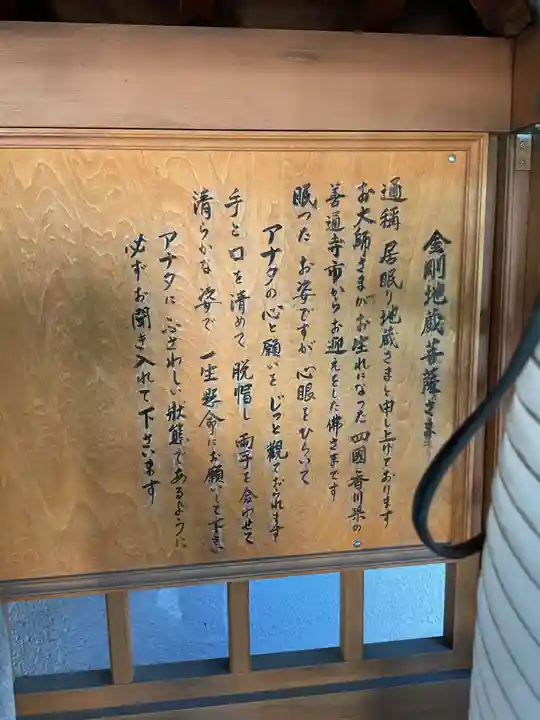 金剛地蔵菩薩さま
通稱 居眠り地蔵さまと申し上げております
お大師さまがお生れになった四國香川県の
善通寺市からお迎えをした佛さまです
眠った お姿ですが 心眼をひらいて
アナタの心と願いを じっと観ておられます
手と口を清めて 脱帽し 両手を合わせて
清らかな 姿で 一生懸命にお願いして下さい
アナタに ふさわしい状態であるように
必ずお聞き入れて下さいます